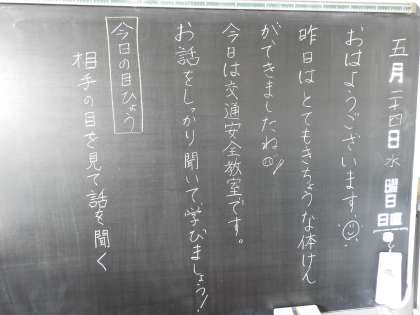 五月二十四日水曜日
日直
おはようございます。
昨日はとてもきちょうな体けん
ができましたね!
今日は交通安全教室です。
お話をしっかり聞いて学びましょう!
今日の目ひょう
相手の目を見て話を聞く